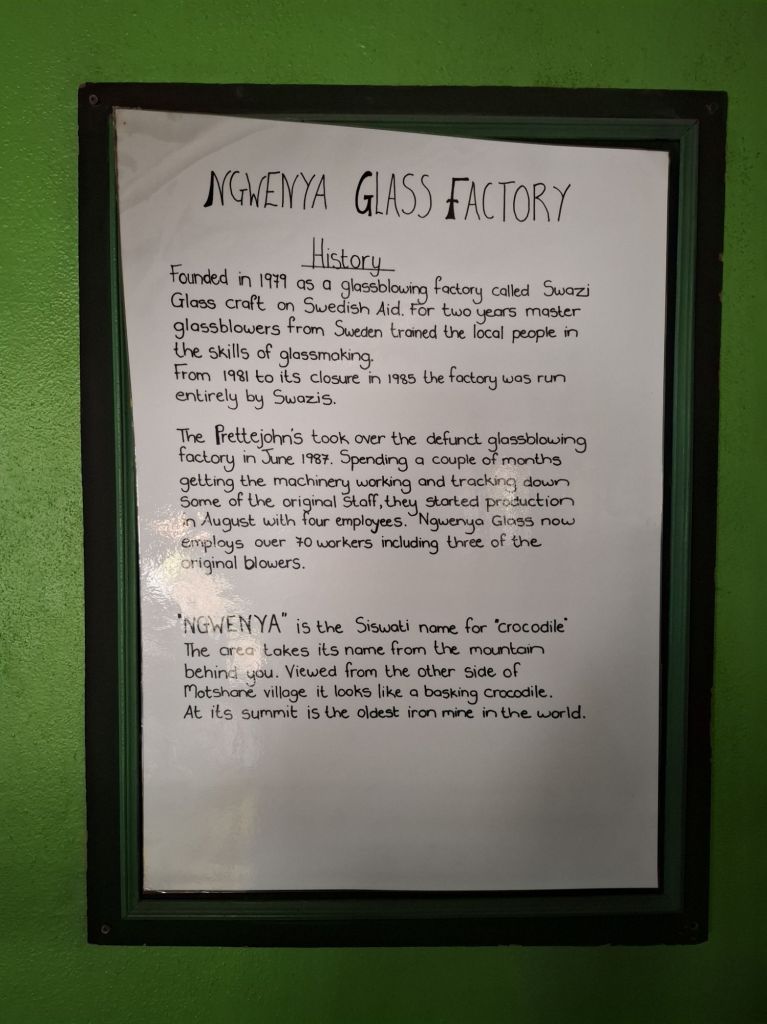 NGWENYA GLASS FACTORY
History
Founded in 1979 as a glassblowing factory called Swazi
Glass craft on Swedish Aid. For two years master
glassblowers from Sweden trained the local people in
the skills of glassmaking.
From 1981 to its closure in 1985 the factory was run
entirely by Swazis.
The Prettejohn's took over the defunct glassblowing
factory in June 1987. Spending a couple of months
getting the machinery working and tracking down
some of the original staff, they started production
in August with four employees. Ngwenya Glass now
employs over 70 workers including three of the
original blowers.
"NGWENYA" is the Siswati name for "crocodile"
The area takes its name from the mountain
behind you. Viewed from the other side of
Motshane village it looks like a basking crocodile.
At its summit is the oldest iron mine in the world.